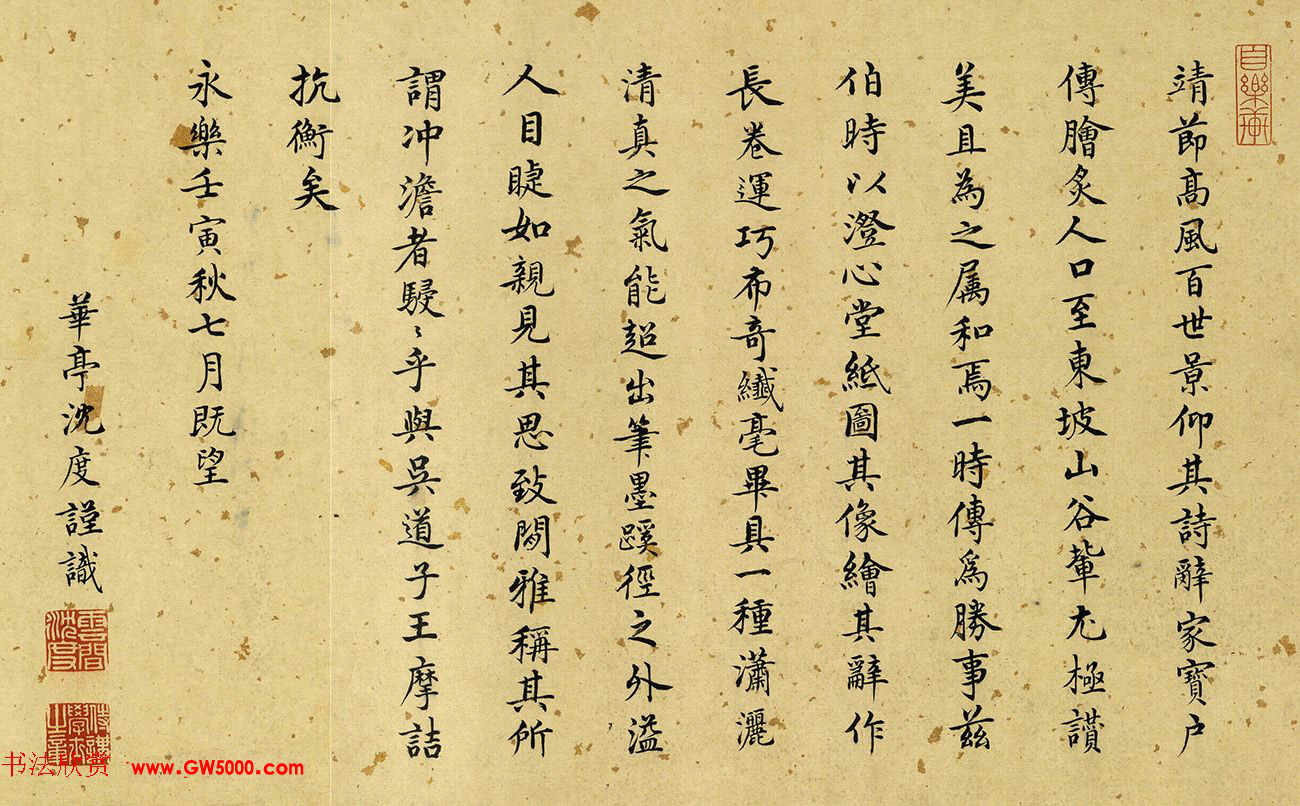 靖節髙風百世景仰其詩辭家寶户
傳膾炙人口至東坡山谷輩尤極讃
美且為之属和焉一時傳為勝事兹
伯時以澄心堂紙圖其像繪其辭作
長卷運巧布奇纖毫畢具一種瀟灑
清真之氣能超出筆墨蹊徑之外溢
人目睫如親見其思致閑雅稱其所
謂冲澹者駸〻乎與吳道子王摩詰
抗衡矣
永樂壬寅秋七月既望
華亭沈度謹識
雲間沈度
书法欣赏 www.GW5000.com